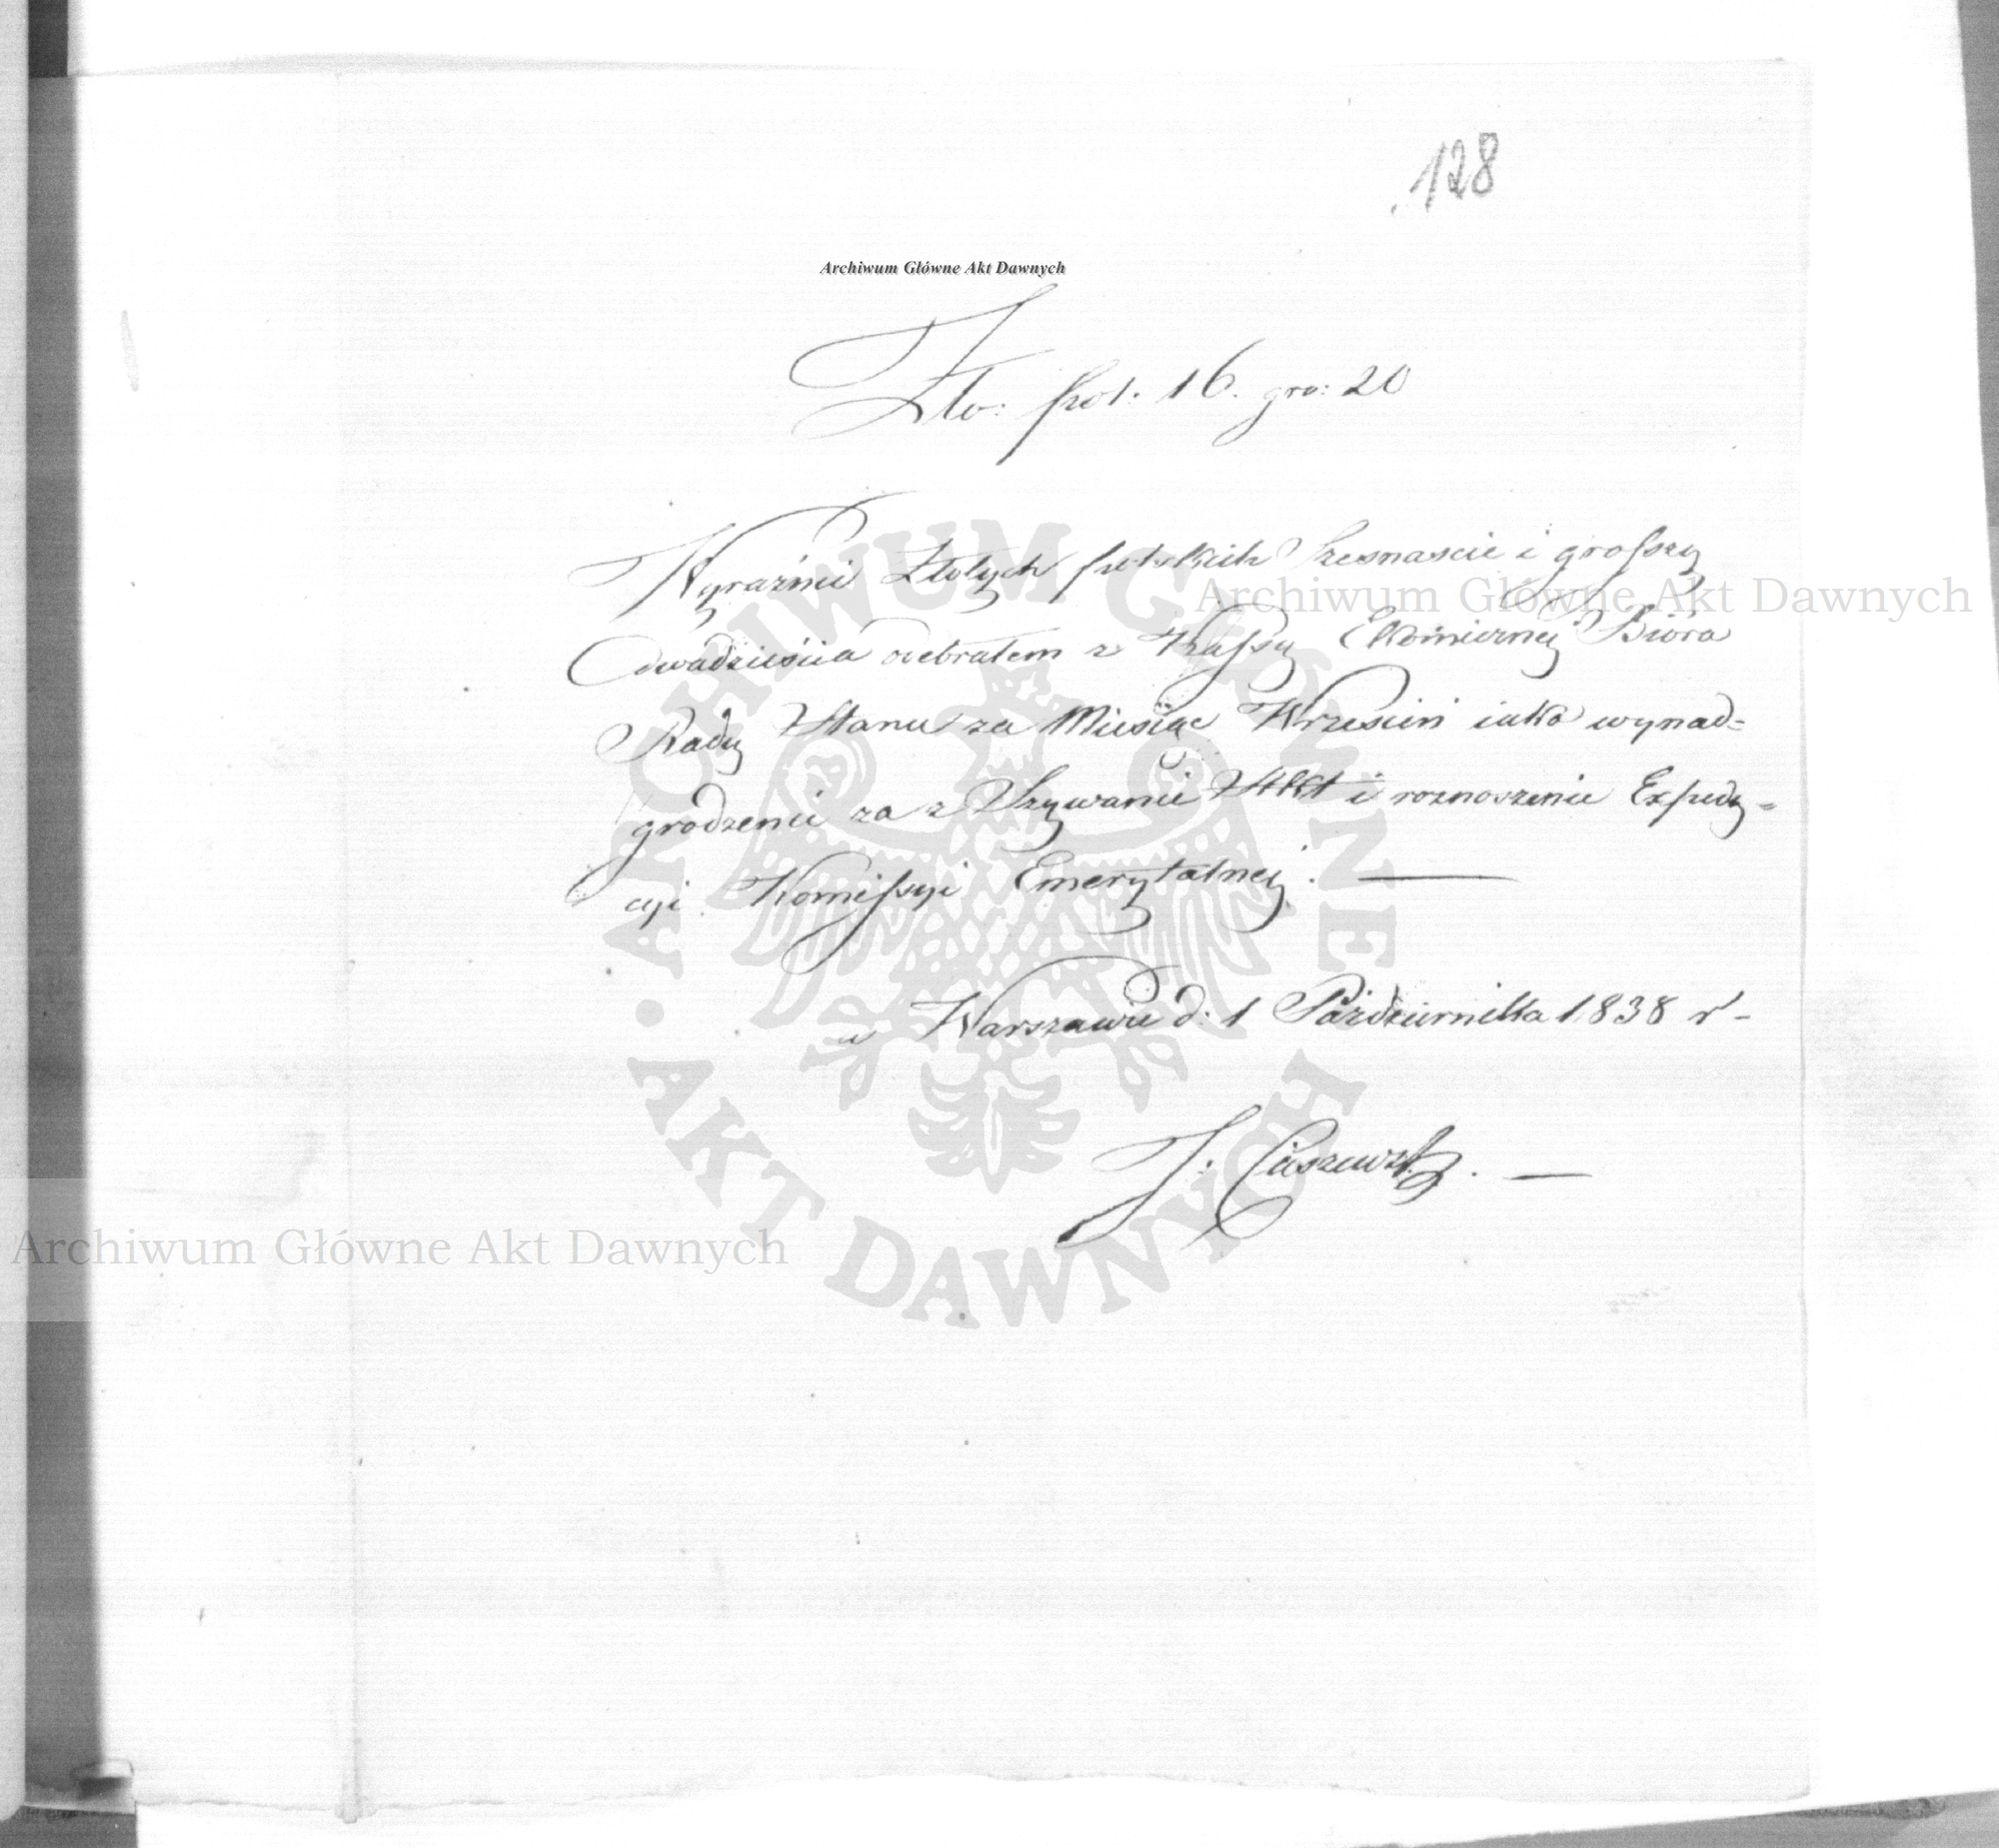 128
Archiwum Główne Akt Dawnych
Zło: pol: 16. gro: 20
Wyraźnie Złotych polskich Szesnascie i groszy
dwadzieścia odebrałem z Kassy Ekomicznej Bióra
Rady Stanu za Miesiąc Wrzesień iako wynad=
grodzenie za z Szywanie Akt i roznoszenie Expedy=
cyi Komissyi Emerytalnej. —
w Warszawie d: 1 Październikka 1838 r -
J: Ciszewski. —
ARCHIWUM GŁÓWNE
AKT DAWNYCH
Archiwum Główne Akt Dawnych
Archiwum Główne Akt Dawnych